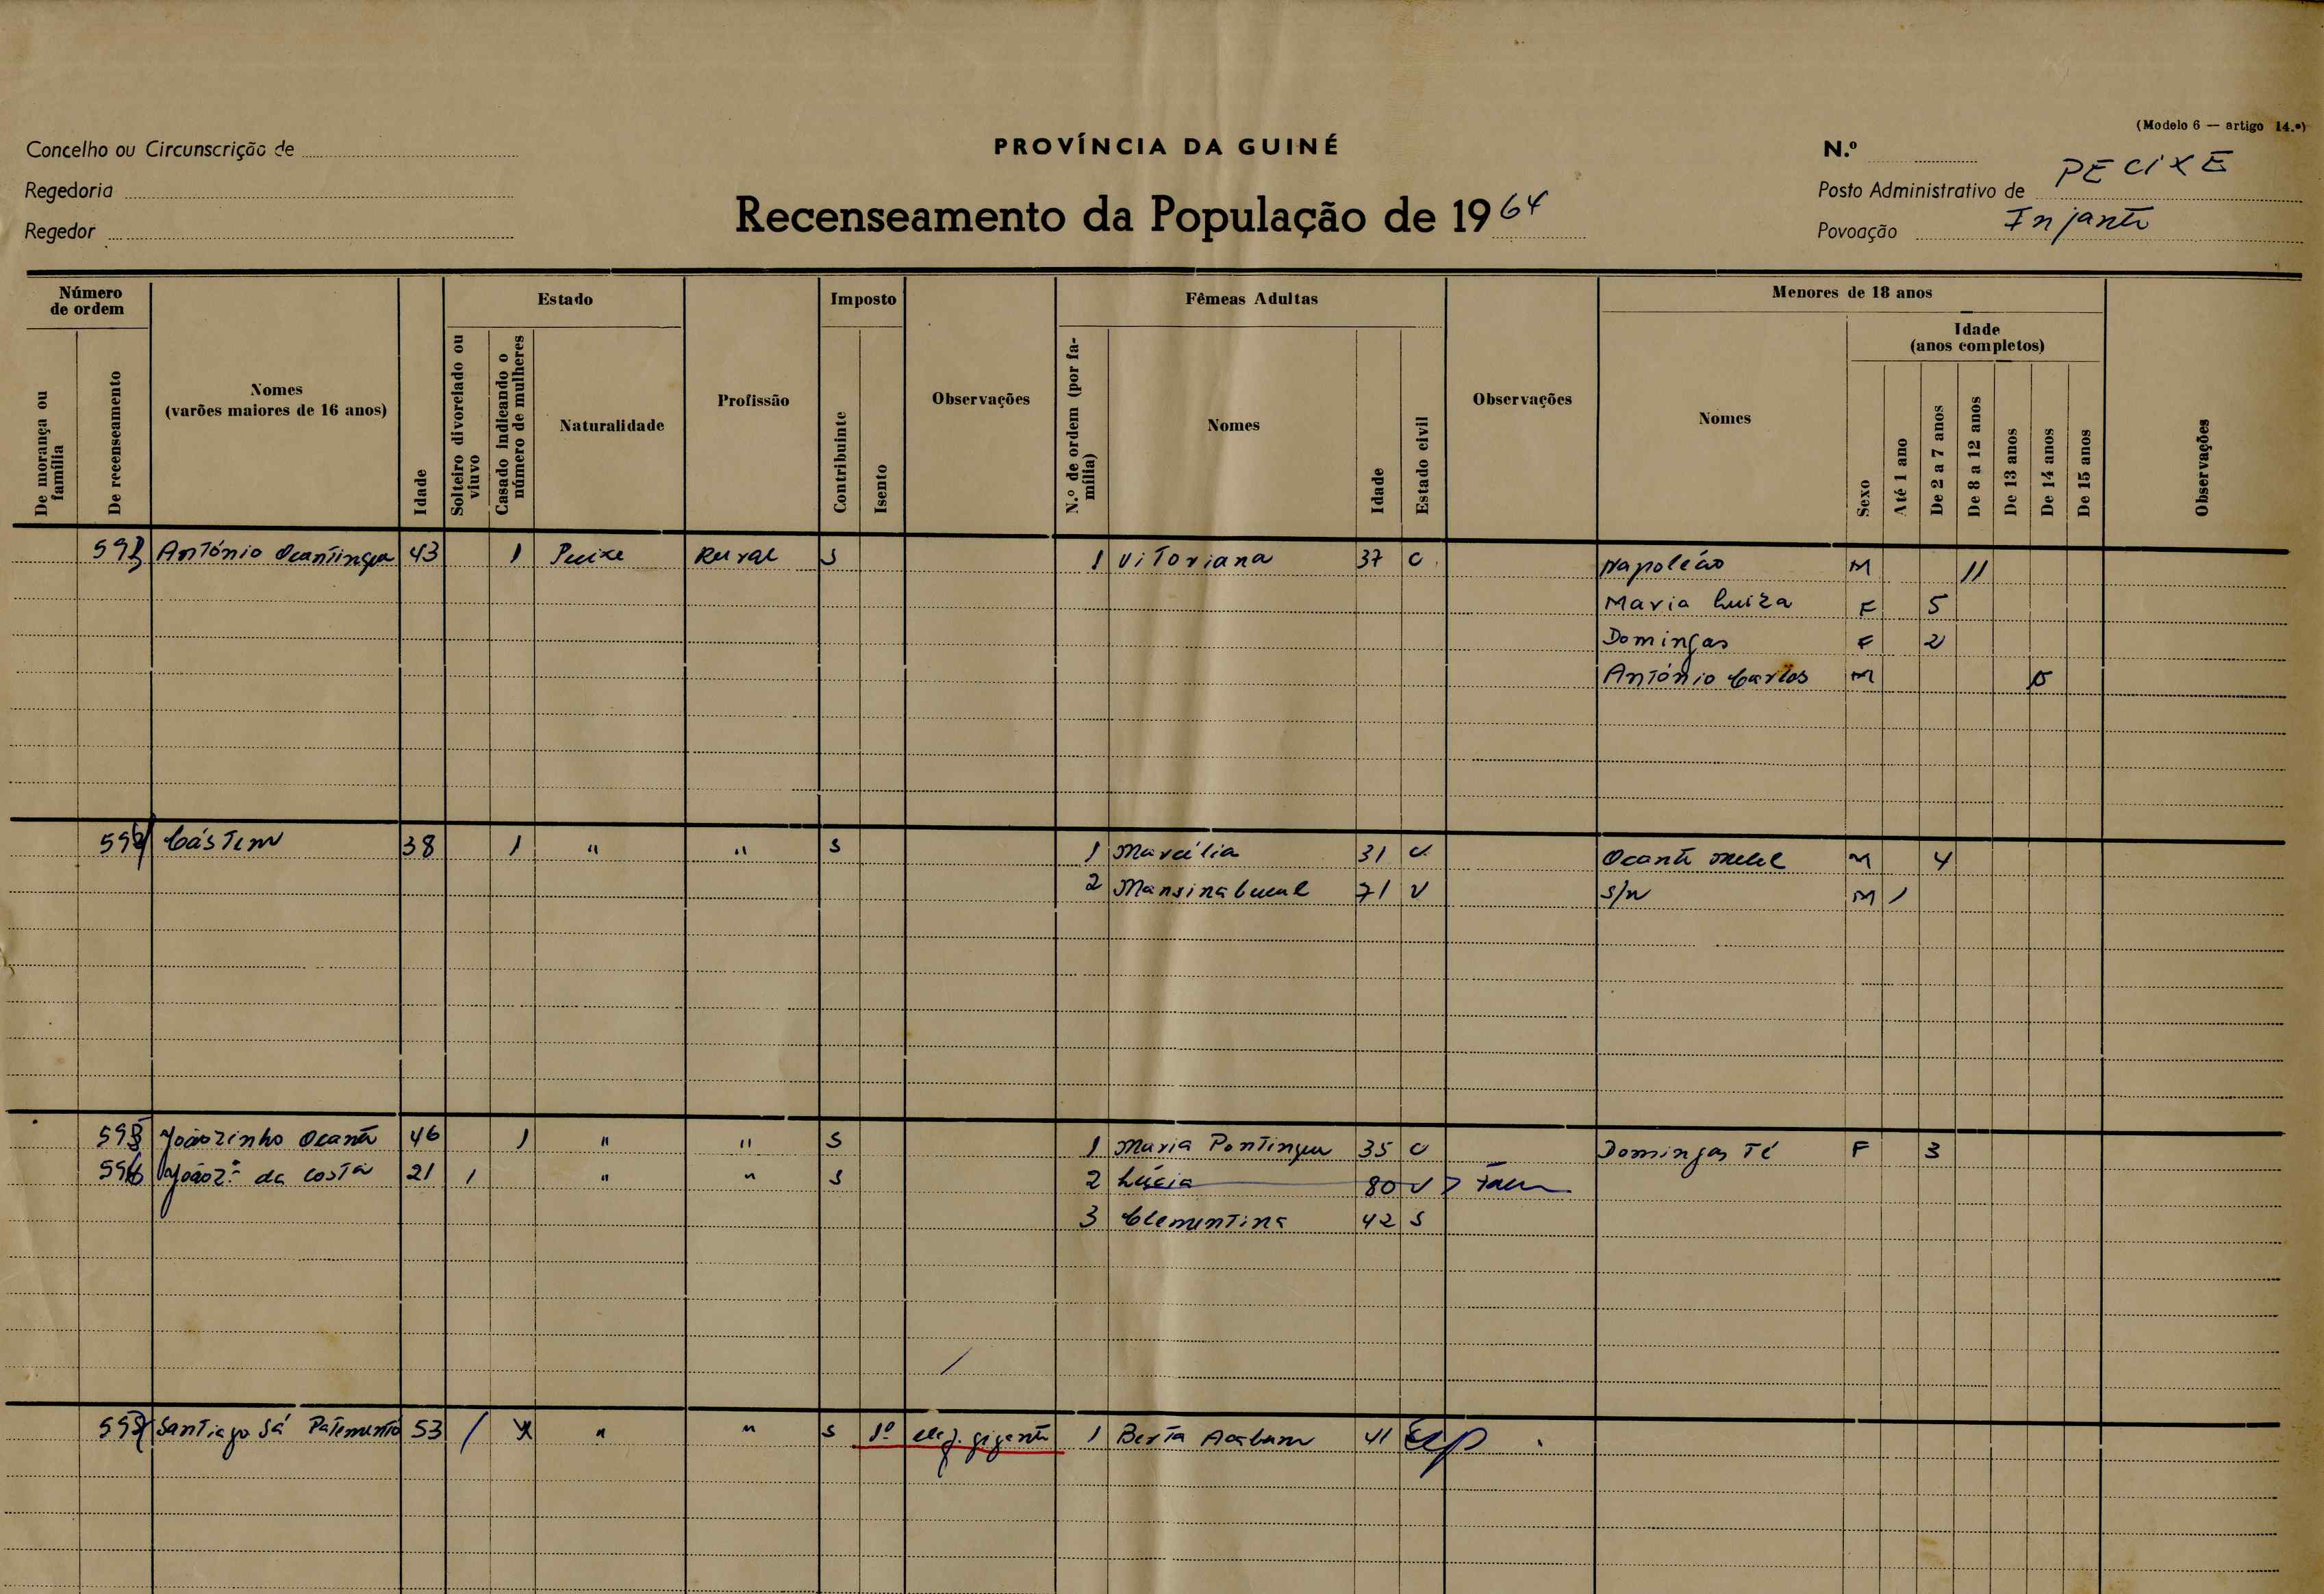 (Modelo 6 — artigo 14.º)
Concelho ou Circunscrição de
PROVÍNCIA DA GUINÉ
N.º
Regedoria
Recenseamento da População de 1964
Posto Administrativo de PECIXE
Regedor
Povoação Injante
Número de ordem
De morança ou família
De recenseamento
Nomes
(varões maiores de 16 anos)
Idade
Estado
Solteiro divorciado ou viuvo
Casado indicando o número de mulheres
Naturalidade
Profissão
Imposto
Contribuinte
Isento
Observações
Fêmeas Adultas
N.º de ordem (por família)
Nomes
Idade
Estado civil
Observações
Menores de 18 anos
Nomes
Sexo
Idade
(anos completos)
Até 1 ano
De 2 a 7 anos
De 8 a 12 anos
De 13 anos
De 14 anos
De 15 anos
Observações
António Ocantinga 43 1 Pecixe Rural S 1 Vitoriana 37 C Napoleão M 11
Maria Luiza F 5
Domingas F 2
António Carlos M
38 1 " " S 1 Marcélia 31 C Ocante M 4
2 71 V S/N M 1
Joãozinho Ocante 46 1 " " S 1 Maria Pontinga 35 C Domingas Té F 3
Joãoz.º da Costa 21 1 " " S 2 Lúcia 80 V
3 Clementina 42 S
Santiago Sá 53 / " " S 1º elef. gigante 1 Berta 41